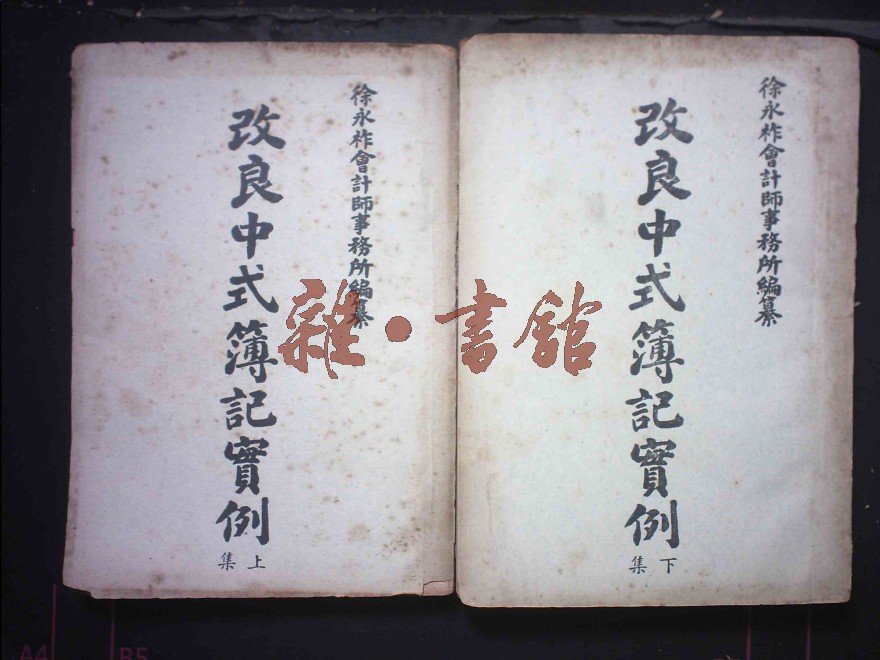 徐永祚會計師事務所編纂
改良中式簿記實例
上集
徐永祚會計師事務所編纂
改良中式簿記實例
下集
雜·書館
A4
B5